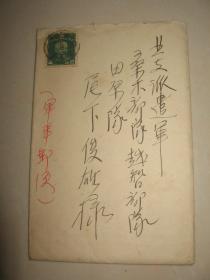 北支派遣軍
桑木部隊越智部隊
田栗隊
尾下俊雄様
(軍事郵便)